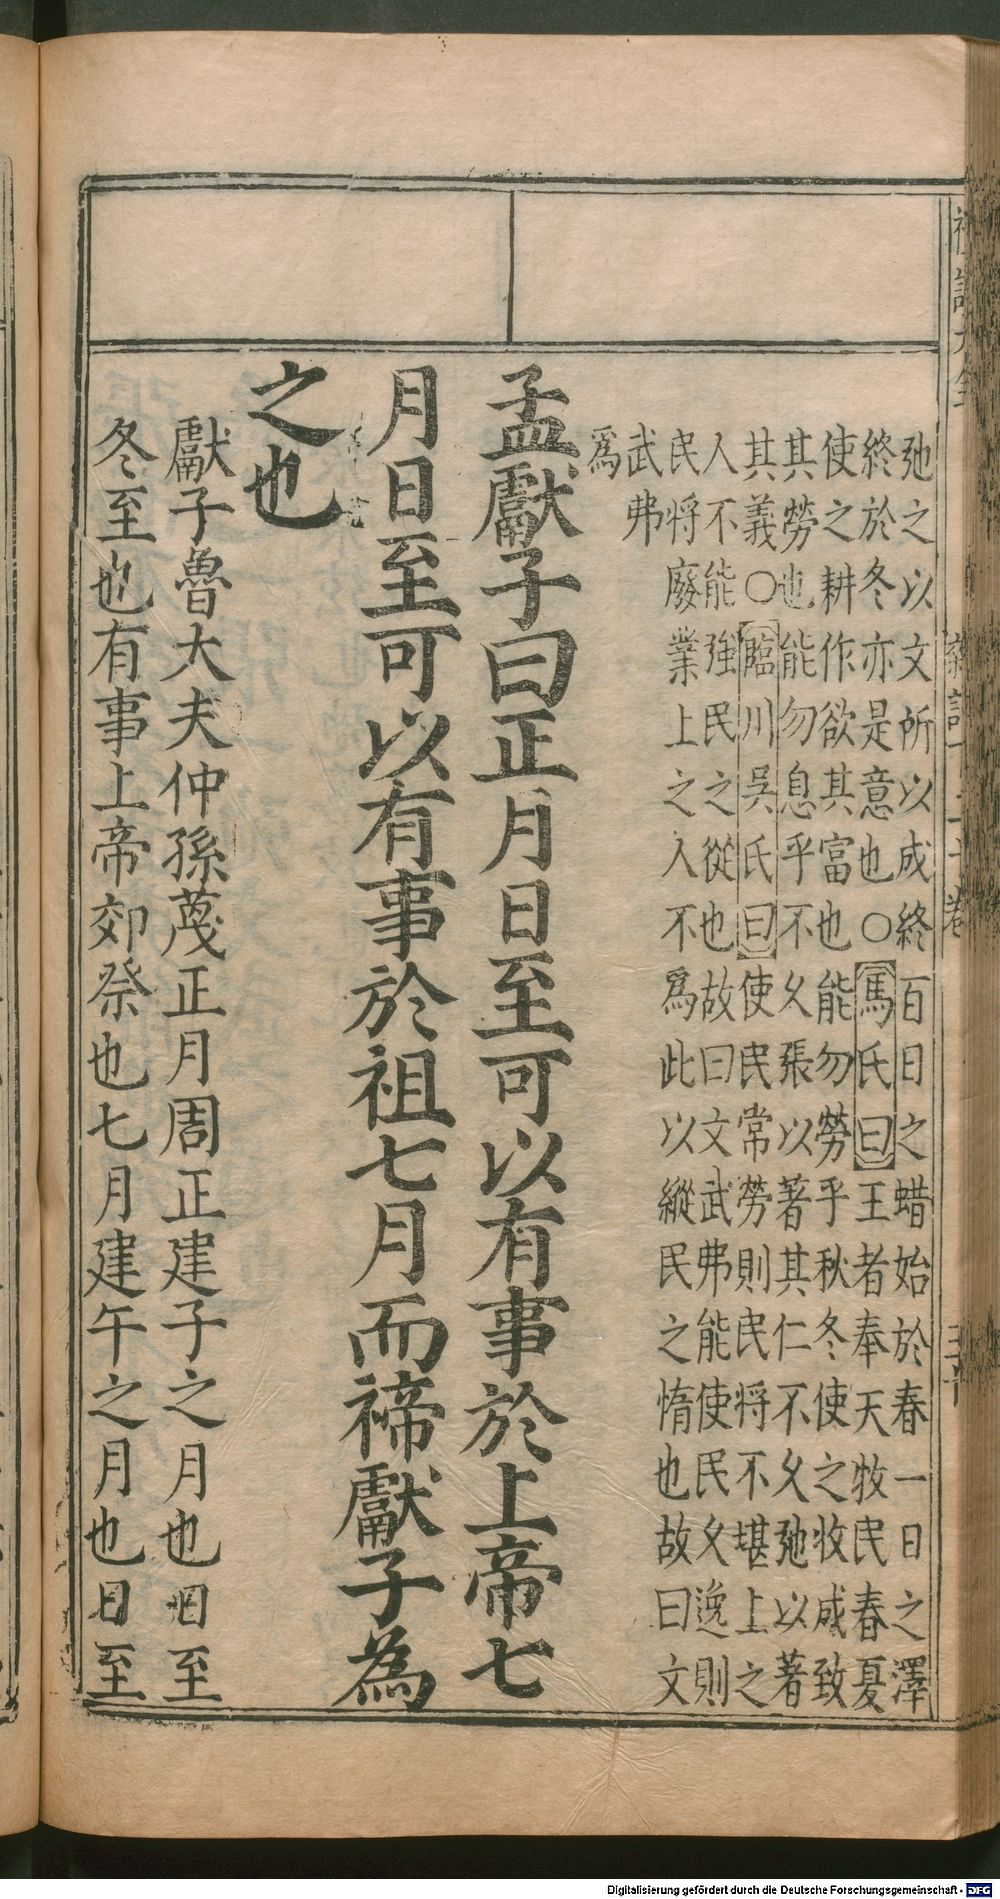 弛之以文所以成終百日之蜡始於春一日之澤
終於冬亦是意也○馬氏曰王者奉天牧民春夏
使之耕作欲其富也能勿勞乎秋冬使之收成致
其勞也能勿息乎不久張以著其仁不久弛以著
其義○臨川吳氏曰使民常勞則民将不堪上之
人不能強民之從也故曰文武弗能使民久逸則
民将廢業上之人不爲此以縱民之惰也故曰文
武弗
爲
孟獻子曰正月日至可以有事於上帝七
月日至可以有事於祖七月而禘獻子為
之也
獻子魯大夫仲孫蔑正月周正建子之月也日至
冬至也有事上帝郊祭也七月建午之月也日至
Digitalisierung gefördert durch die Deutsche Forschungsgemeinschaft - DFG